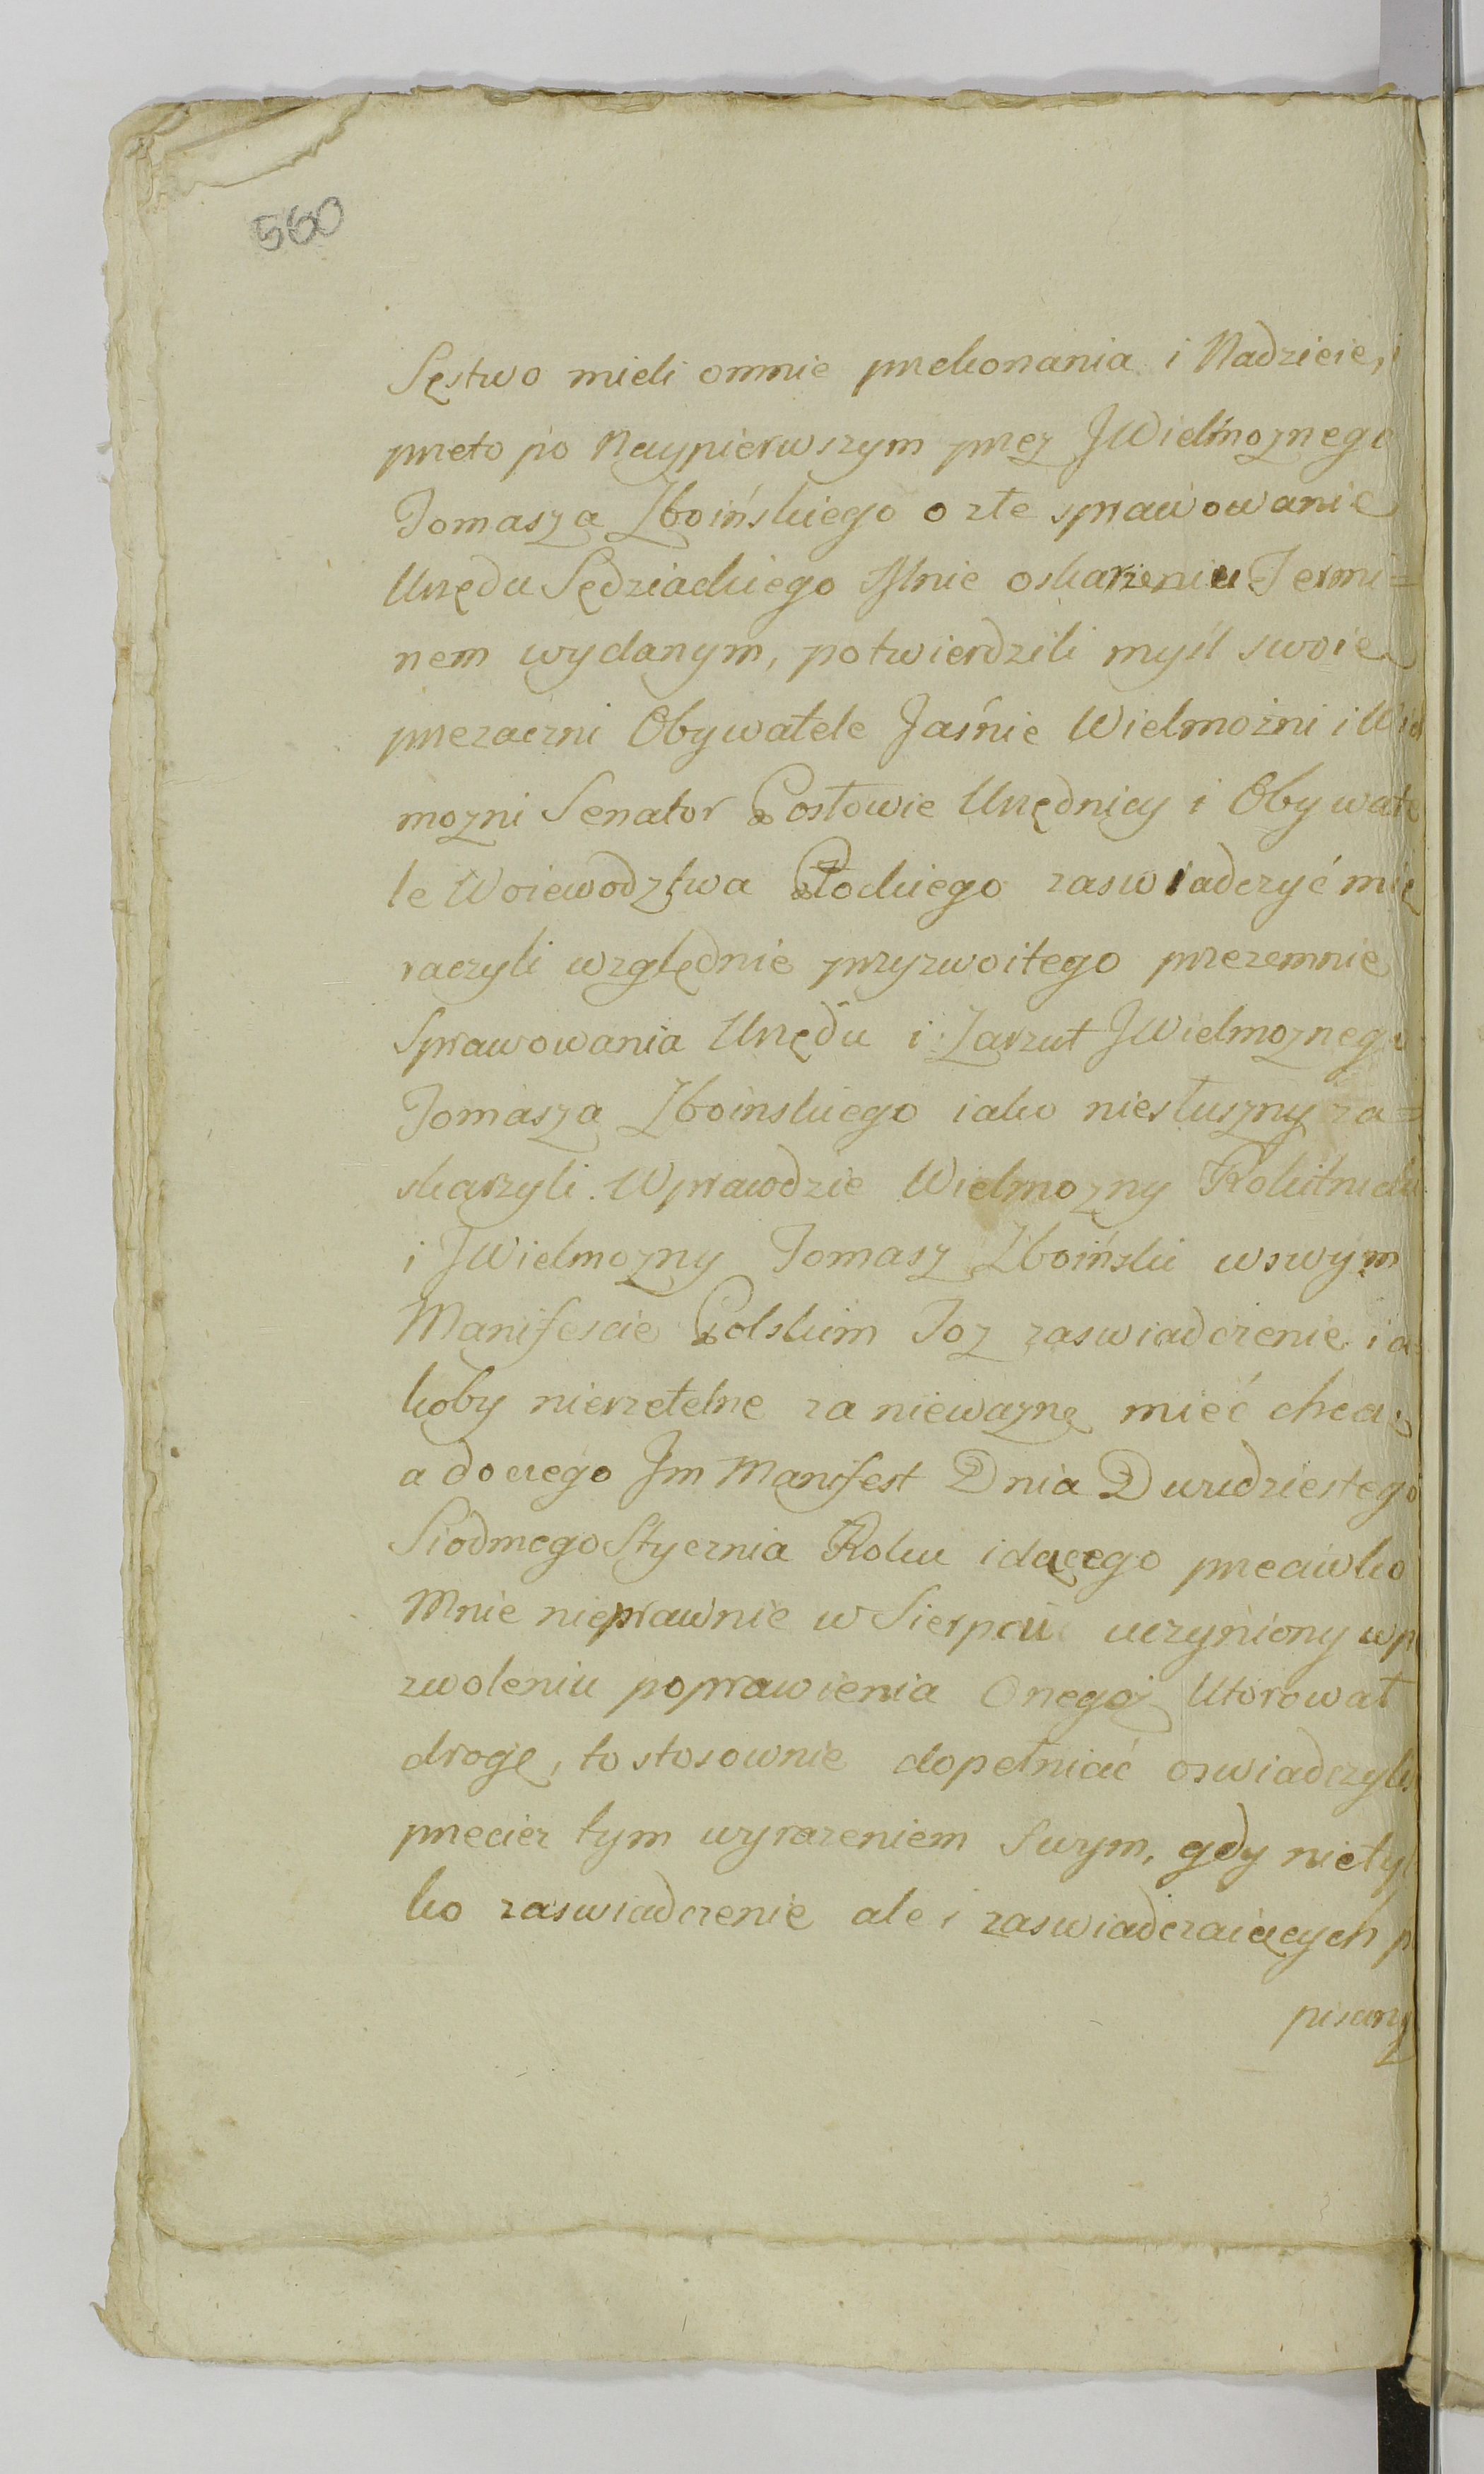 560
Sęstwo mieli omnie przekonania i Nadzieie, i
przeto po Naypierwszym przez JWielmoznego
Tomasza Zboińskiego o złe sprawowanie
Urzędu Sędziackiego Mnie oskarzeniu Termi=
nem wydanym, potwierdzili myśl swoię
przezacni Obywatele Jaśnie Wielmożni i Wiel
mozni Senator Posłowie Urzędnicy i Obywate
le Woiewodztwa Płockiego zaswiadczyć mię
raczyli względnie przyzwoitego przezemnie
Sprawowania Urzędu i Zarzut JWielmoznego
Tomasza Zboinskiego iako niesłuszny za=
skarzyli. Wprawdzie Wielmozny Rokitnicki
i JWielmozny Tomasz Zboiński wswym
Manifescie Polskim Toz zaswiadczenie ia
koby nierzetelne za niewaznę mieć chcą,
a doczego Im Manifest Dnia Dwudziestego
Siodmego Stycznia Roku idącego przeciwko
Mnie nieprawnie w Sierpcu uczyniony wp
zwoleniu poprawienia Onegoż Utorował
drogę, to stosownie dopełniać oswiadczyli
przeciez tym wyrazeniem Swym, gdy niety
ko zaswiadczenie ale i zaswiadczaiących p
pisany